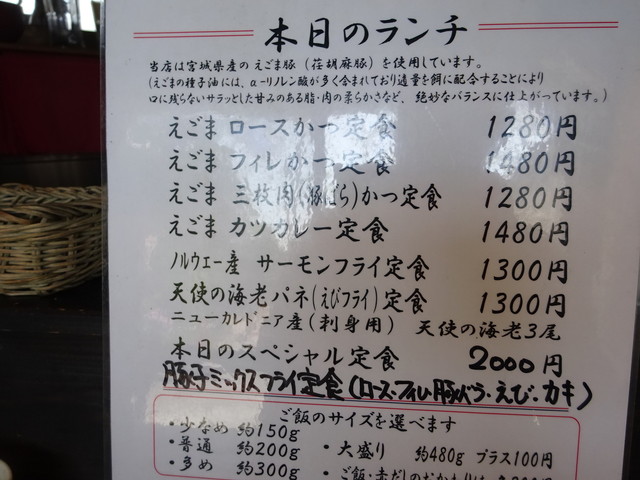 本日のランチ
当店は宮城県産の えごま豚(荏胡麻豚)を使用しています。
(えごまの種子油には、α-リノレン酸が多く含まれており適量を餌に配合することにより
口に残らないサラッとした甘みのある脂・肉の柔らかさなど、絶妙なバランスに仕上がっています。)
えごま ロースかつ定食 1280円
えごま フィレかつ定食 1480円
えごま 三枝肉(豚ばら)かつ定食 1280円
えごま カツカレー定食 1480円
ノルウエー産 サーモンフライ定食 1300円
天使の海老パネ(えびフライ)定食 1300円
ニューカレドニア産(刺身用) 天使の海老3尾
本日のスペシャル定食 2000円
豚子ミックスフライ定食(ロース・フィレ・豚バラ・えび・カキ)
ご飯のサイズを選べます
・少なめ 約150g
・普通 約200g ・大盛り 約480g プラス100円
・多め 約300g ・ご飯・赤だしのおかわりは